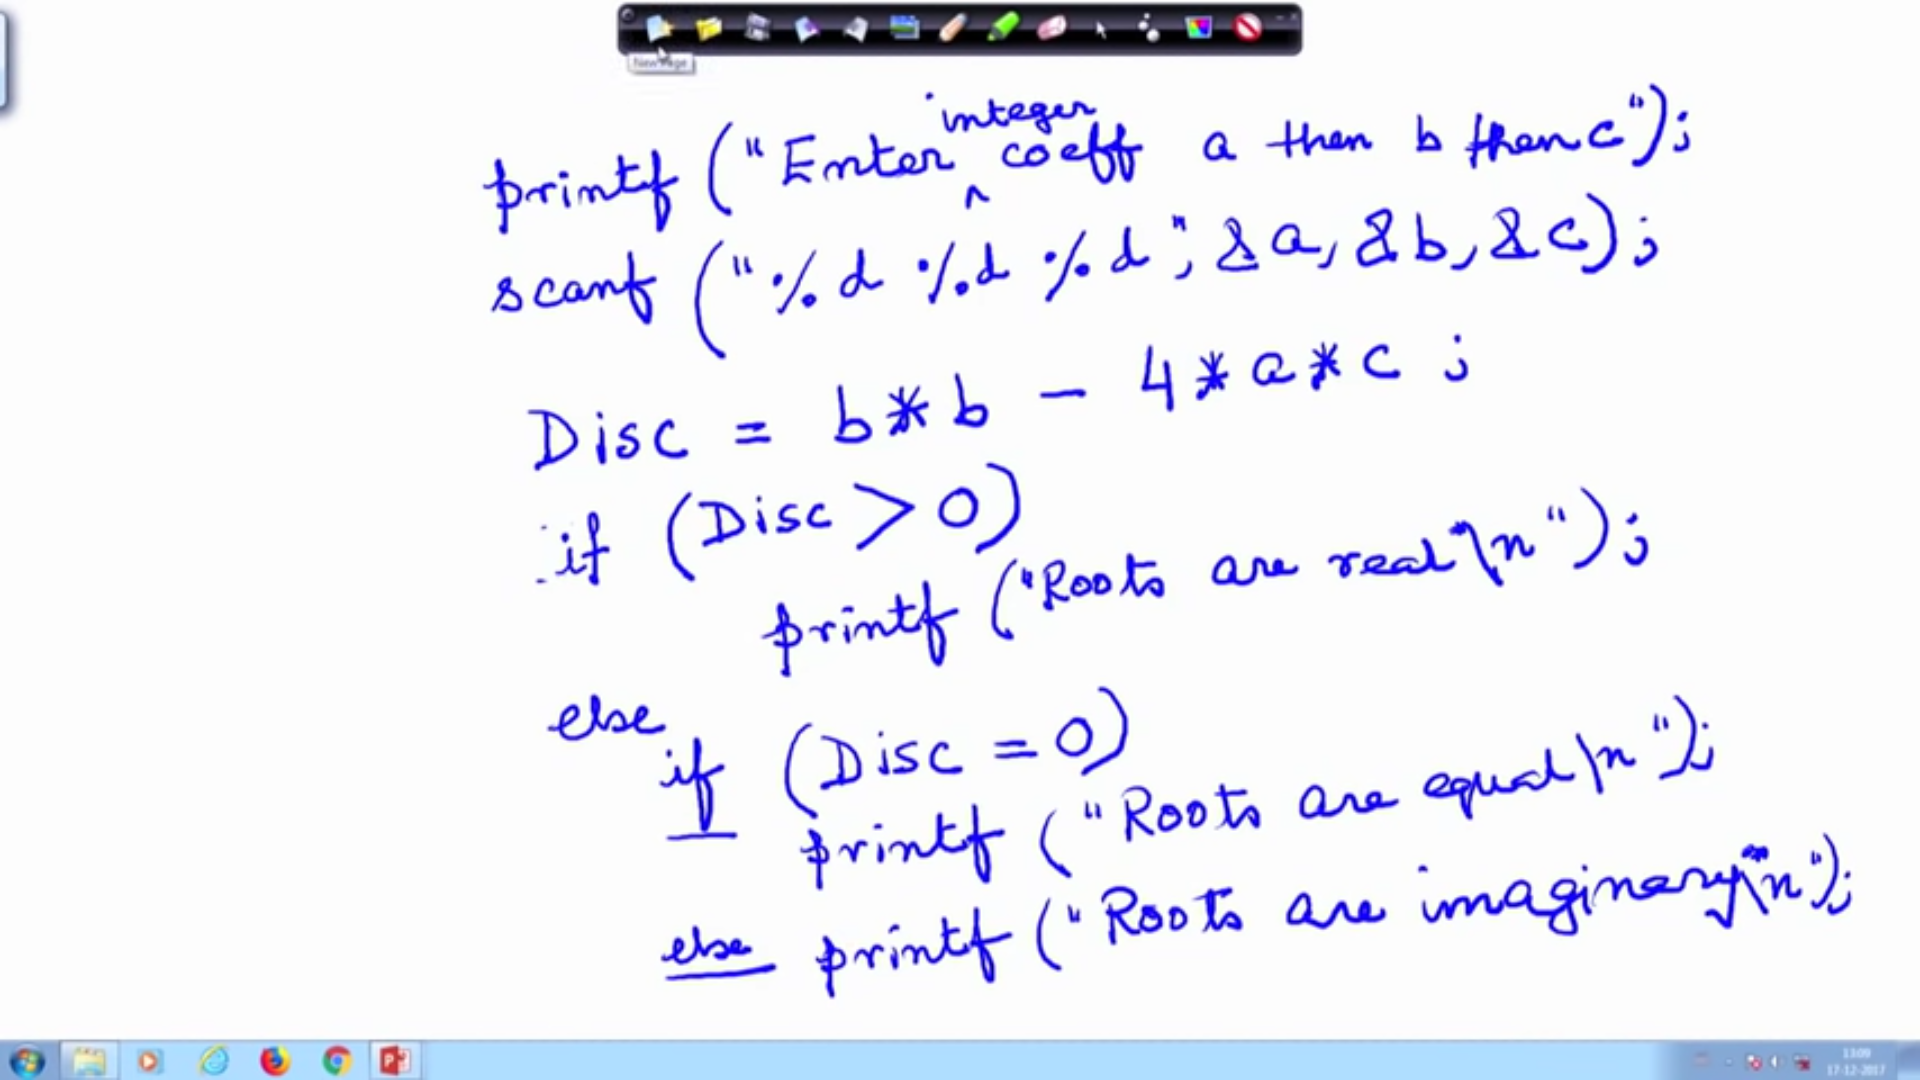 New Page
integer
printf ("Enter ^ coeff a then b then c");
scanf ("%d %d %d", &a, &b, &c);
Disc = b*b - 4*a*c ;
if (Disc > 0)
printf ("Roots are real\n");
else
if (Disc = 0)
printf ("Roots are equal\n");
else printf ("Roots are imaginary\n");
13:09
17-12-2017